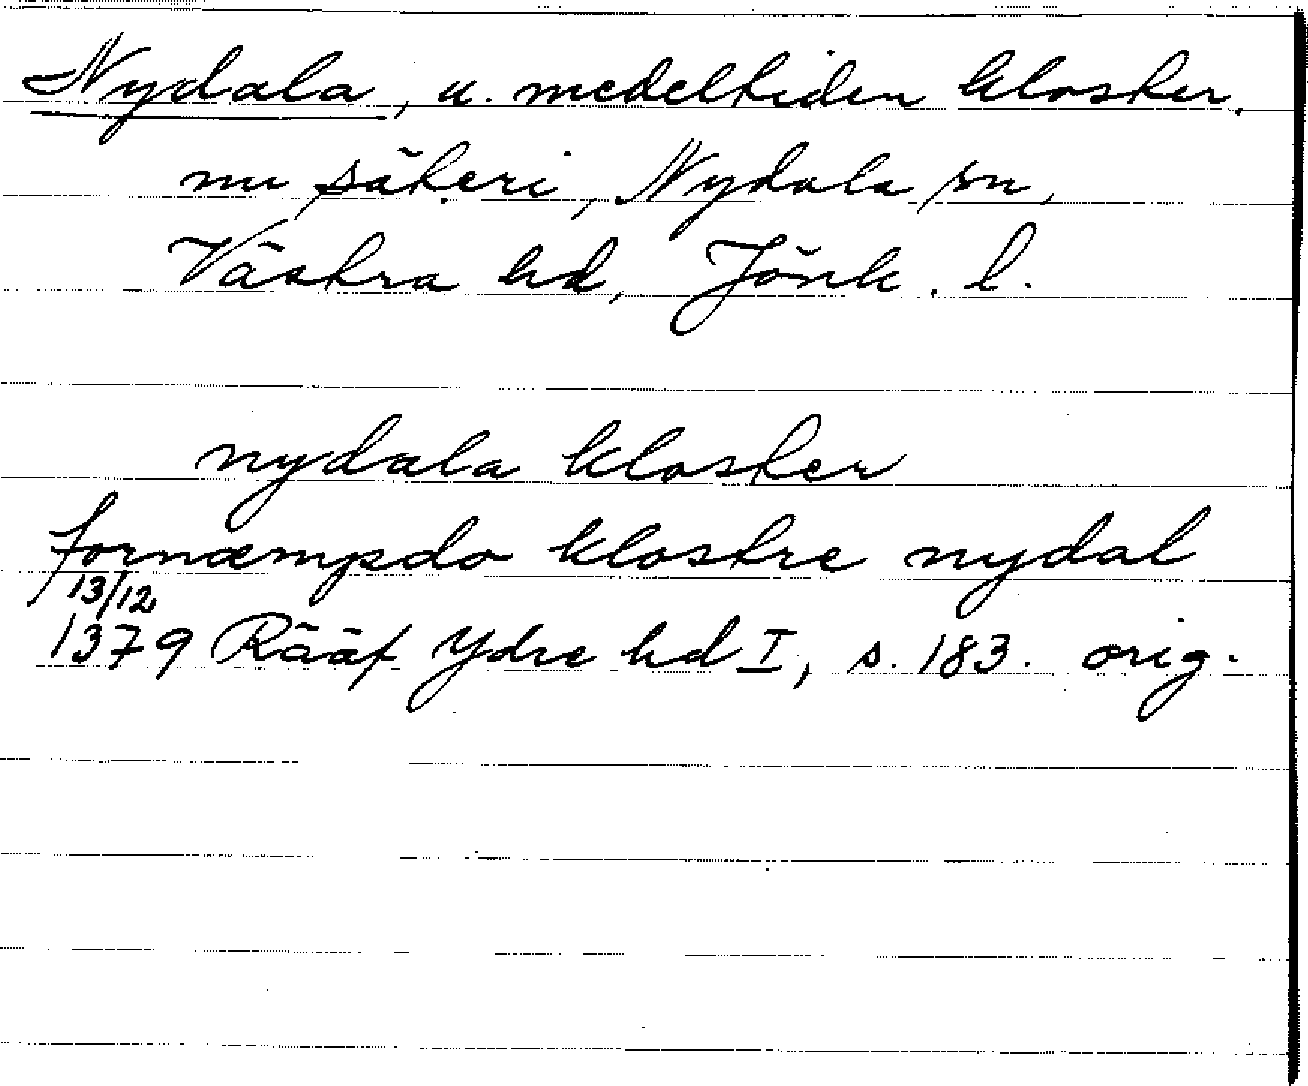 Nydala, u. medeltiden kloster,
nu säteri, Nydala sn,
Västra hd, Jönk. l.
nydala kloster
fornæmpsdo klostre nydal
13/12
1379 Rääf Ydre hd I, s. 183. orig.